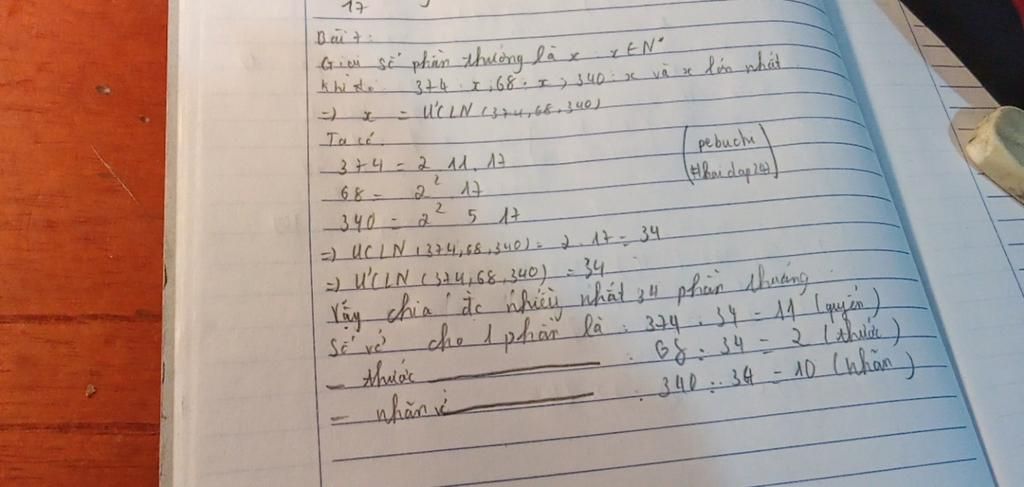 17
Bài 7:
Gọi số phần thưởng là x x ∈ N*
Khi đó: 374 : x, 68 : x, 340 : x và x lớn nhất
=) x = ƯCLN (374, 68, 340)
Ta có.
374 = 2 11. 17
68 = 2² 17
340 = 2² 5 17
(pebuchi
#hoidap247)
=) UCLN (374, 68, 340) = 2 . 17 = 34
=) ƯCLN (374, 68, 340) = 34
Vậy chia đc nhiều nhất 34 phần thưởng
Số vở cho 1 phần là : 374 : 34 = 11 (quyển)
– thước : 68 : 34 = 2 (thước)
– nhãn vở : 340 : 34 = 10 (nhãn)